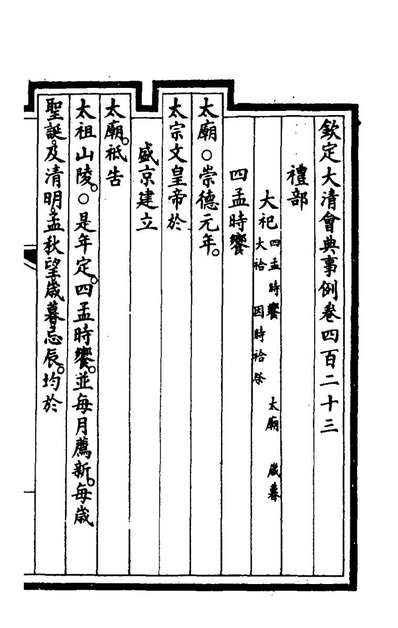 欽定大清會典事例卷四百二十三
禮部
大祀四孟時饗 太廟 歲暮
大祫 因時祫祭
四孟時饗
太廟○崇德元年。
太宗文皇帝於
盛京建立
太廟。祇告
太祖山陵。○是年定。四孟時饗。並每月薦新。每歲
聖誕。及清明。孟秋望。歲暮。忌辰。均於